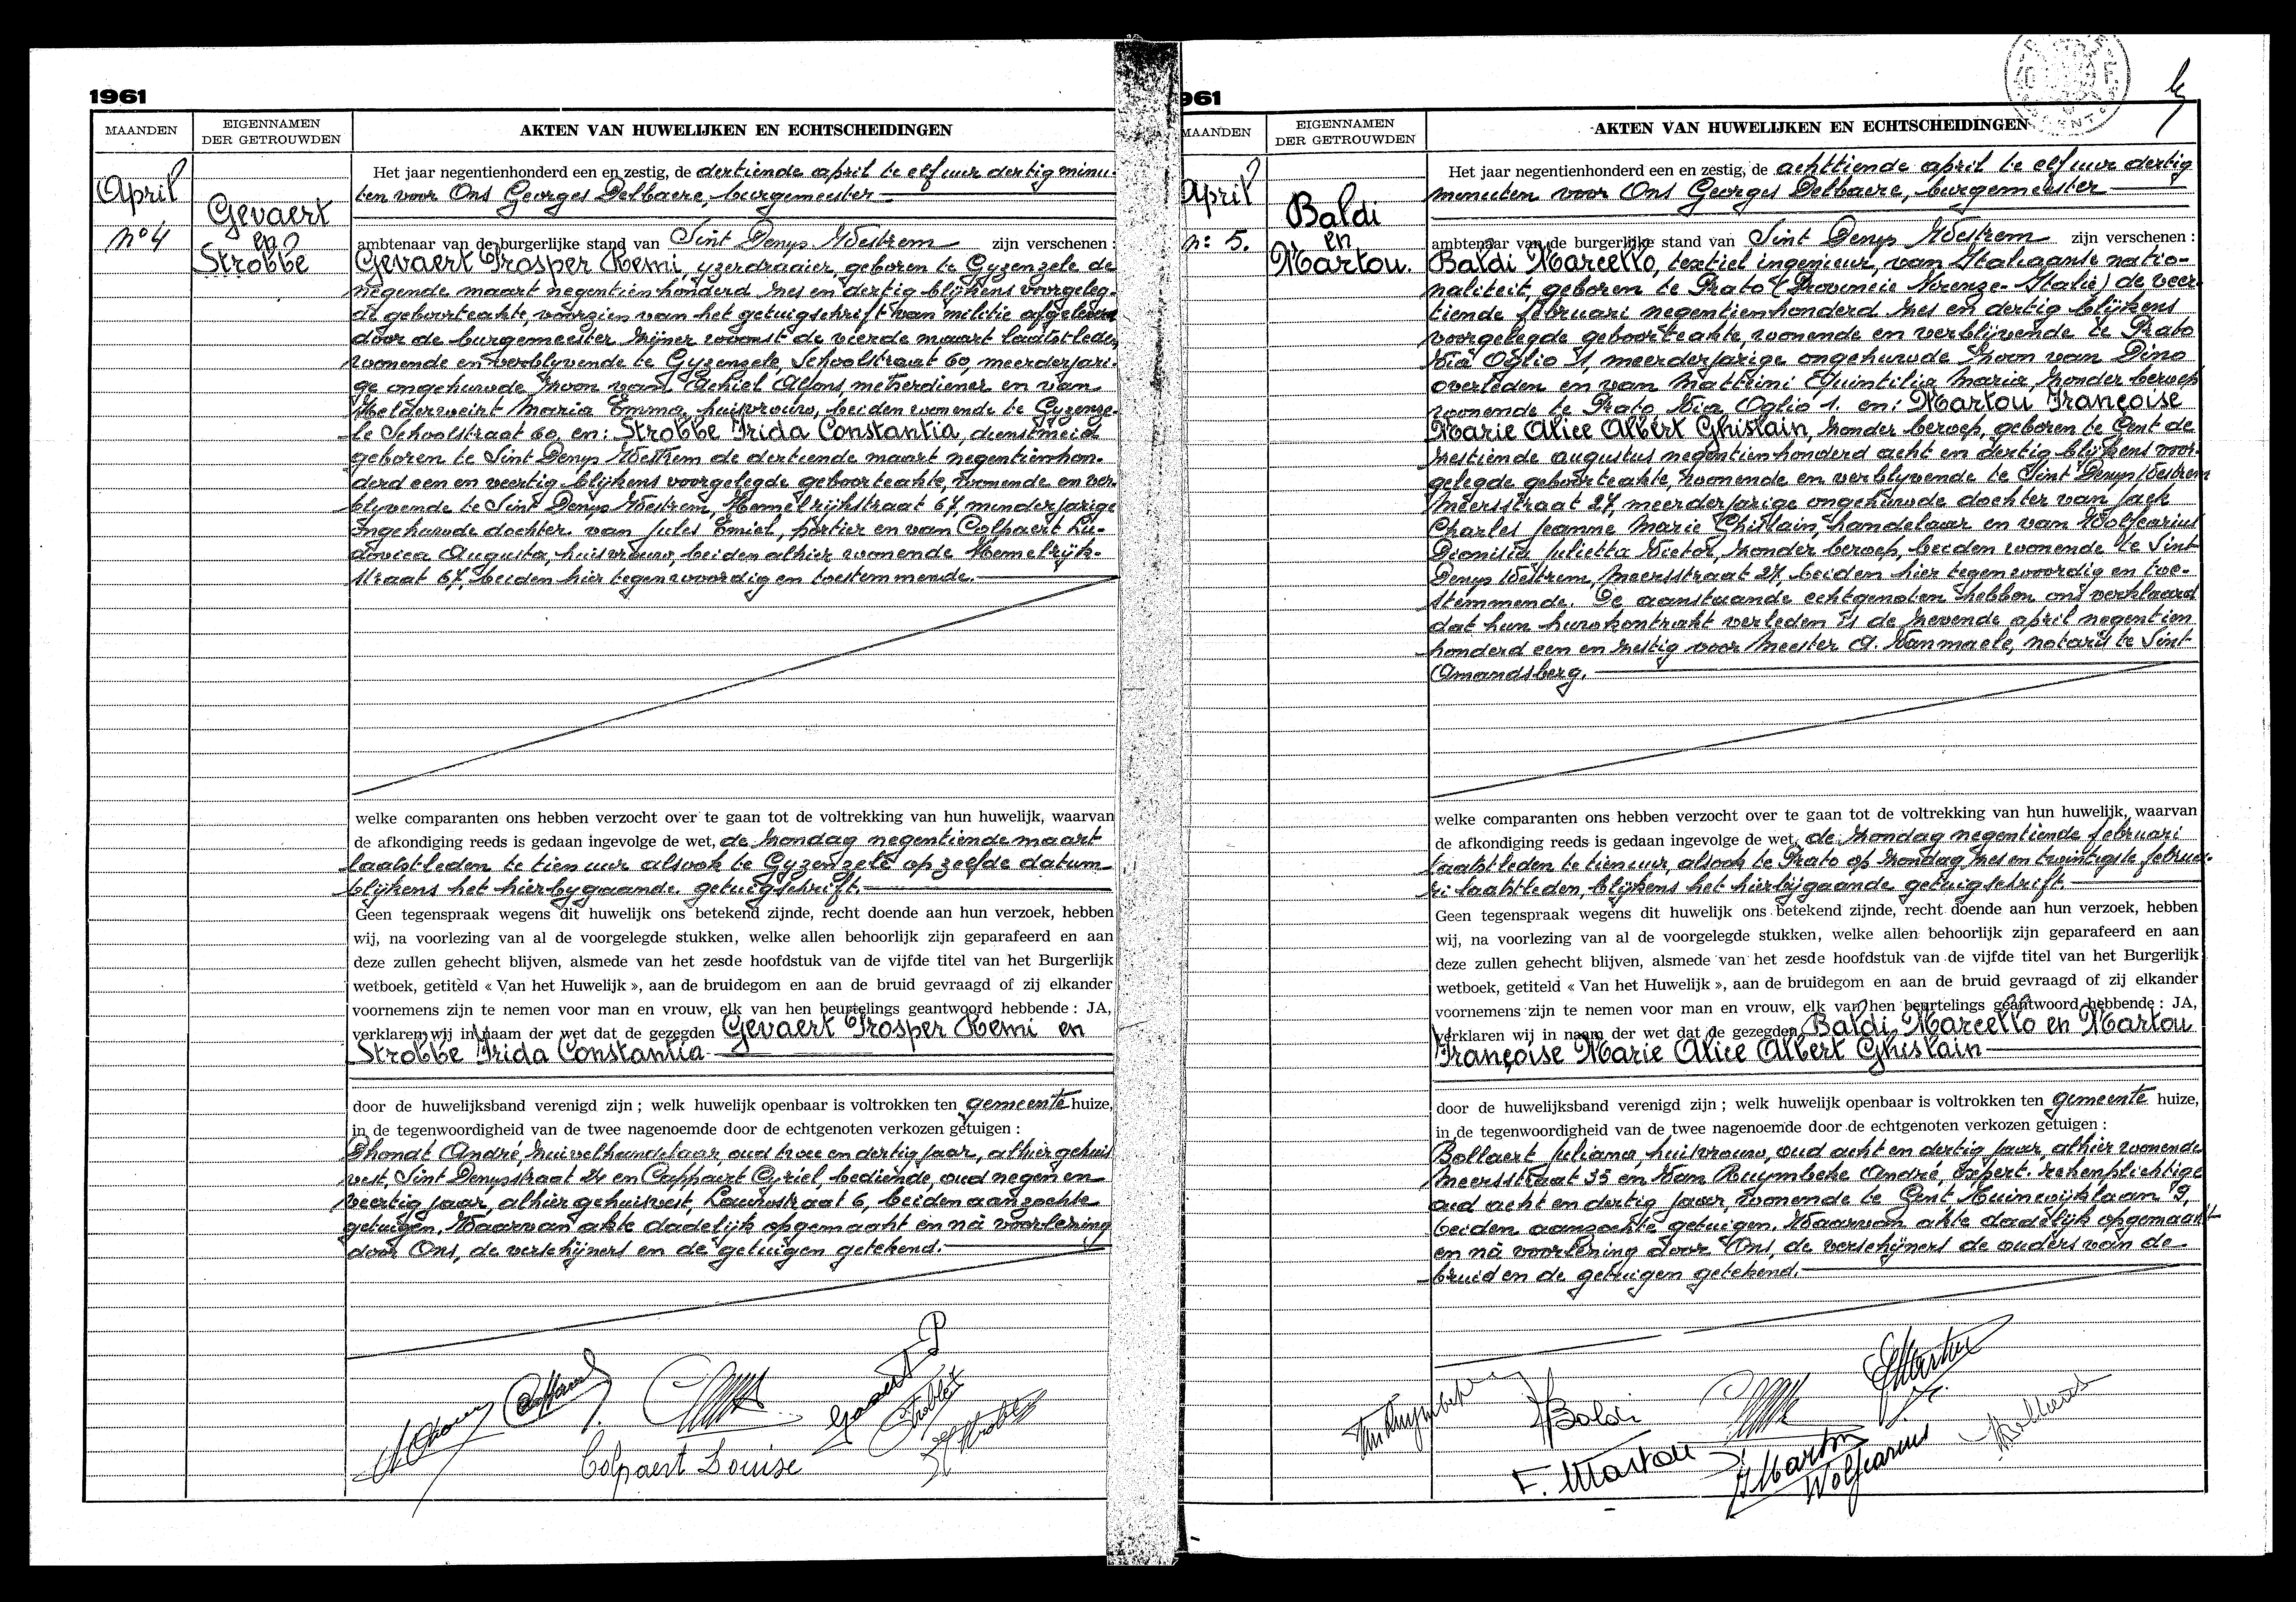 1961
MAANDEN
EIGENNAMEN
DER GETROUWDEN
AKTEN VAN HUWELIJKEN EN ECHTSCHEIDINGEN
April
No 4
Gevaert
en
Strobbe
Het jaar negentienhonderd een en zestig, de dertiende april te elf uur dertig minu-
ten voor Ons Georges Delbaere, burgemeester
ambtenaar van de burgerlijke stand van Sint Denys Westrem zijn verschenen :
Gevaert Prosper Remi, yzerdraaier, geboren te Gyzenzele de
negende maart negentienhonderd zes en dertig blijkens voorgeleg-
de geboorteakte, voorzien van het getuigschrift van militie afgeleverd
door de burgemeester zijner woonst de vierde maart laatstleden,
wonende en verblyvende te Gyzenzele, Schoolstraat 60, meerderjari-
ge ongehuwde zoon van Achiel Alfons, metserdiener en van
Helderweirt Maria Emma, huisvrouw, beiden wonende te Gyzenze-
le Schoolstraat 60, en: Strobbe Frida Constantia, dienstmeid
geboren te Sint Denys Westrem de dertiende maart negentienhon-
derd een en veertig blijkens voorgelegde geboorteakte, wonende en ver-
blyvende te Sint Denys Westrem, Hemelrijkstraat 67, minderjarige
ongehuwde dochter van Jules Emiel, portier en van Colpaert Lu-
dovica Augusta, huisvrouw, beiden alhier wonende Hemelrijk-
straat 67, beiden hier tegenwoordig en toestemmende.
welke comparanten ons hebben verzocht over te gaan tot de voltrekking van hun huwelijk, waarvan
de afkondiging reeds is gedaan ingevolge de wet, de zondag negentiende maart
laatstleden te tien uur alsook te Gyzenzele op zelfde datum
blijkens het hierbygaande getuigschrift.
Geen tegenspraak wegens dit huwelijk ons betekend zijnde, recht doende aan hun verzoek, hebben
wij, na voorlezing van al de voorgelegde stukken, welke allen behoorlijk zijn geparafeerd en aan
deze zullen gehecht blijven, alsmede van het zesde hoofdstuk van de vijfde titel van het Burgerlijk
wetboek, getiteld « Van het Huwelijk », aan de bruidegom en aan de bruid gevraagd of zij elkander
voornemens zijn te nemen voor man en vrouw, elk van hen beurtelings geantwoord hebbende : JA,
verklaren wij in naam der wet dat de gezegden Gevaert Prosper Remi en
Strobbe Frida Constantia
door de huwelijksband verenigd zijn ; welk huwelijk openbaar is voltrokken ten gemeente huize,
in de tegenwoordigheid van de twee nagenoemde door de echtgenoten verkozen getuigen :
Dhondt André, zuivelhandelaar, oud twee en dertig jaar, alhier gehuis-
vest, Sint Denysstraat 24 en Cappaert Cyriel, bediende, oud negen en
veertig jaar, alhier gehuisvest, Lauwstraat 6, beiden aanzochte
getuigen. Waarvan akte dadelijk opgemaakt en nà voorlezing
door Ons, de verschijners en de getuigen getekend.
Colpaert Louise
Gevaert P
961
MAANDEN
EIGENNAMEN
DER GETROUWDEN
AKTEN VAN HUWELIJKEN EN ECHTSCHEIDINGEN
April
n: 5.
Baldi
en
Martou.
Het jaar negentienhonderd een en zestig, de achttiende april te elf uur dertig
minuten voor Ons Georges Delbaere, burgemeester
ambtenaar van de burgerlijke stand van Sint Denys Westrem zijn verschenen :
Baldi Marcello, textiel ingenieur, van Italiaanse natio-
naliteit, geboren te Prato (Provincie Firenze-Italië) de veer-
tiende februari negentienhonderd zes en dertig blijkens
voorgelegde geboorteakte, wonende en verblijvende te Prato
Via Oglio 1, meerderjarige ongehuwde zoon van Dino
overleden en van Mattrini Quintilia Maria zonder beroep
wonende te Prato, Via Oglio 1. en: Martou Françoise
Marie Alice Albert Ghislain, zonder beroep, geboren te Gent de
zestiende augustus negentienhonderd acht en dertig blijkens voor-
gelegde geboorteakte, wonende en verblyvende te Sint Denys Westrem
Meersstraat 27, meerderjarige ongehuwde dochter van Jack
Charles Jeanne Marie Ghislain, handelaar en van Wolfcarius
Dionisia Julietta Victor, zonder beroep, beiden wonende te Sint
Denys Westrem, Meersstraat 27, beiden hier tegenwoordig en toe-
stemmende. De aanstaande echtgenoten hebben ons verklaard
dat hun huwkontrakt verleden is de zevende april negentien
honderd een en zestig voor Meester A. Vanmaele, notaris te Sint
Amandsberg.
welke comparanten ons hebben verzocht over te gaan tot de voltrekking van hun huwelijk, waarvan
de afkondiging reeds is gedaan ingevolge de wet, de zondag negentiende februari
laatstleden te tien uur, alsook te Prato op zondag zes en twintigste februa-
ri laatstleden, blijkens het hierbijgaande getuigschrift.
Geen tegenspraak wegens dit huwelijk ons betekend zijnde, recht doende aan hun verzoek, hebben
wij, na voorlezing van al de voorgelegde stukken, welke allen behoorlijk zijn geparafeerd en aan
deze zullen gehecht blijven, alsmede van het zesde hoofdstuk van de vijfde titel van het Burgerlijk
wetboek, getiteld « Van het Huwelijk », aan de bruidegom en aan de bruid gevraagd of zij elkander
voornemens zijn te nemen voor man en vrouw, elk van hen beurtelings geantwoord hebbende : JA,
verklaren wij in naam der wet dat de gezegden Baldi Marcello en Martou
Françoise Marie Alice Albert Ghislain
door de huwelijksband verenigd zijn ; welk huwelijk openbaar is voltrokken ten gemeente huize,
in de tegenwoordigheid van de twee nagenoemde door de echtgenoten verkozen getuigen :
Bollaert Juliana, huisvrouw, oud acht en dertig jaar, alhier wonende
Meersstraat 35 en Van Ruymbeke André, Expert-rekenplichtige
oud acht en dertig jaar, wonende te Gent, Muinkwijklaan 19,
beiden aanzochte getuigen. Waarvan akte dadelijk opgemaakt
en nà voorlezing door Ons, de verschijners de ouders van de
bruid en de getuigen getekend.
Van Ruymbeke
Baldi
F. Martou
Martou
Wolfcarius